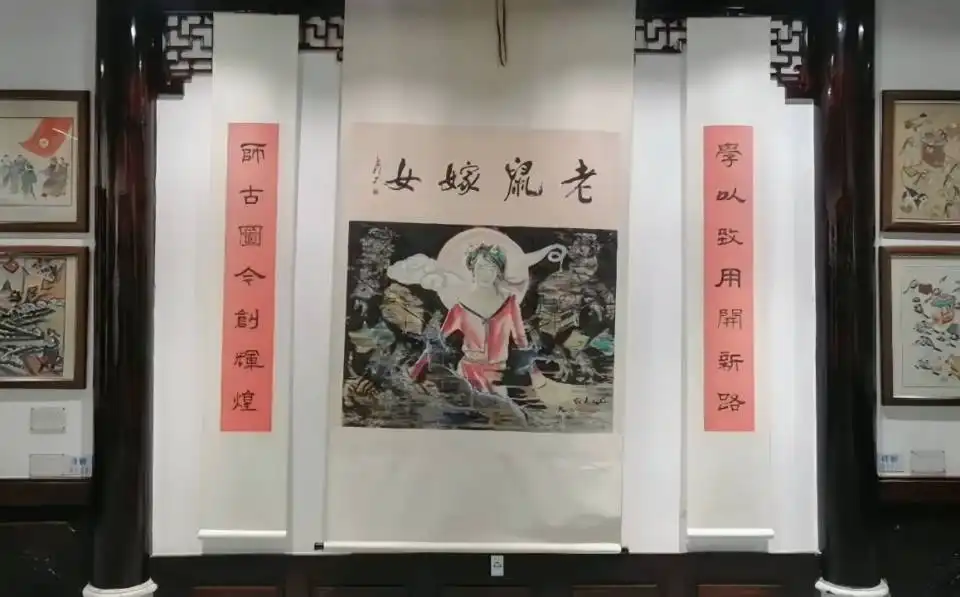 老鼠嫁女
學以致用開新路
師古圖今創輝煌